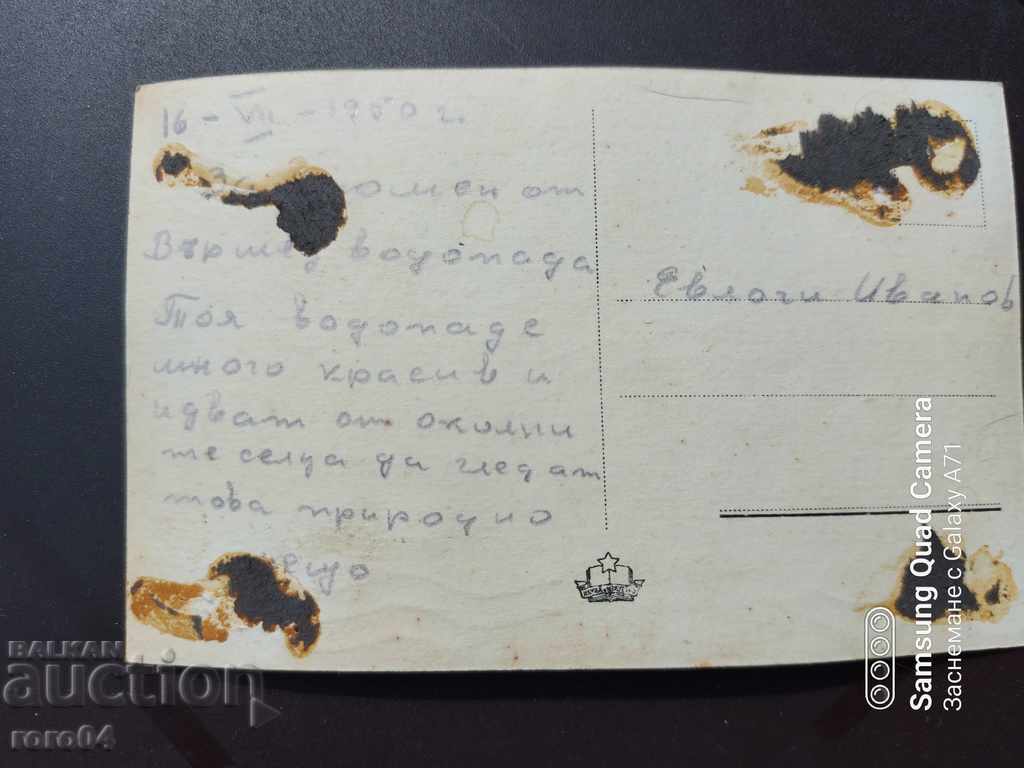 16 - VII - 1950 г.
За омен от
Вършец водопада
Тоя водопад е
много красив и
идват от околни
те селца да гледат
това природно
нещо
Евлоги Иванов
BALKAN
auction
roro04
Samsung Quad Camera
Заснемане с Galaxy A71